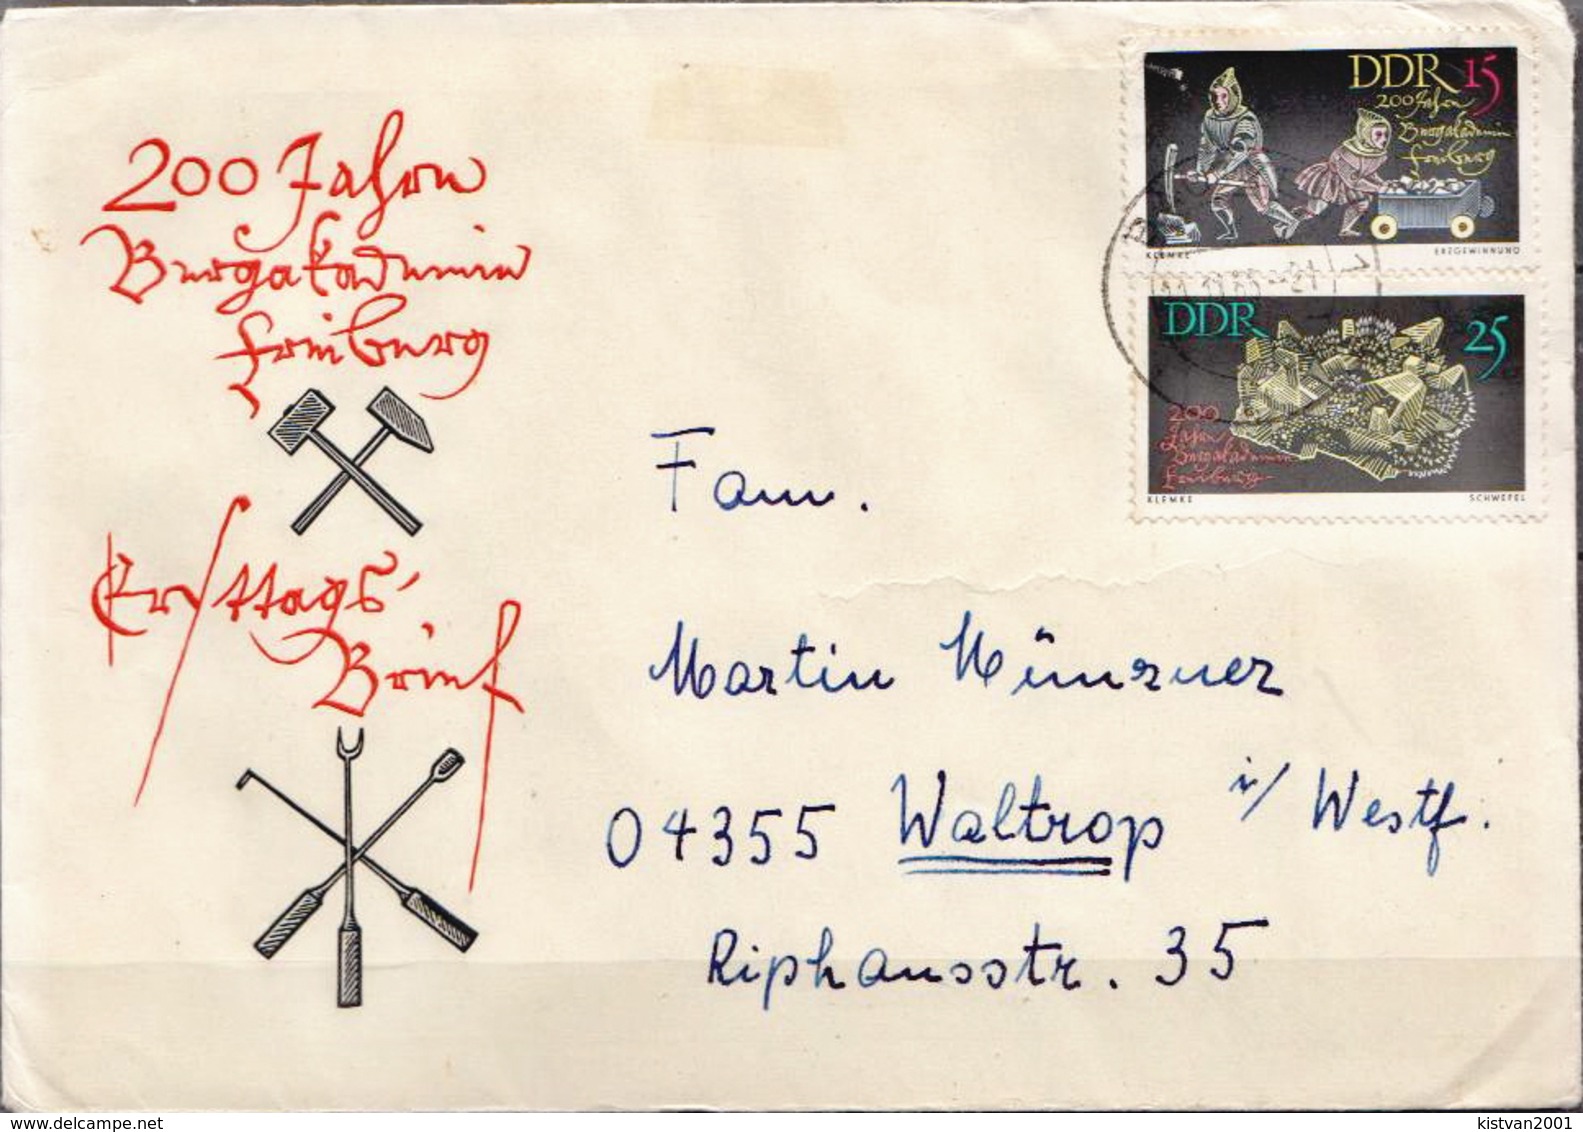 200 Jahre
Bergakademie
Freiberg
Ersttags-
Brief
DDR 15
200 Jahre
Bergakademie
Freiberg
KLEMKE ERZGEWINNUNG
DDR 25
200
Jahre
Bergakademie
Freiberg
KLEMKE SCHWEFEL
Fam.
Martin Münzner
04355 Waltrop i/ Westf.
Riphausstr. 35
delcampe.net
kistvan2001